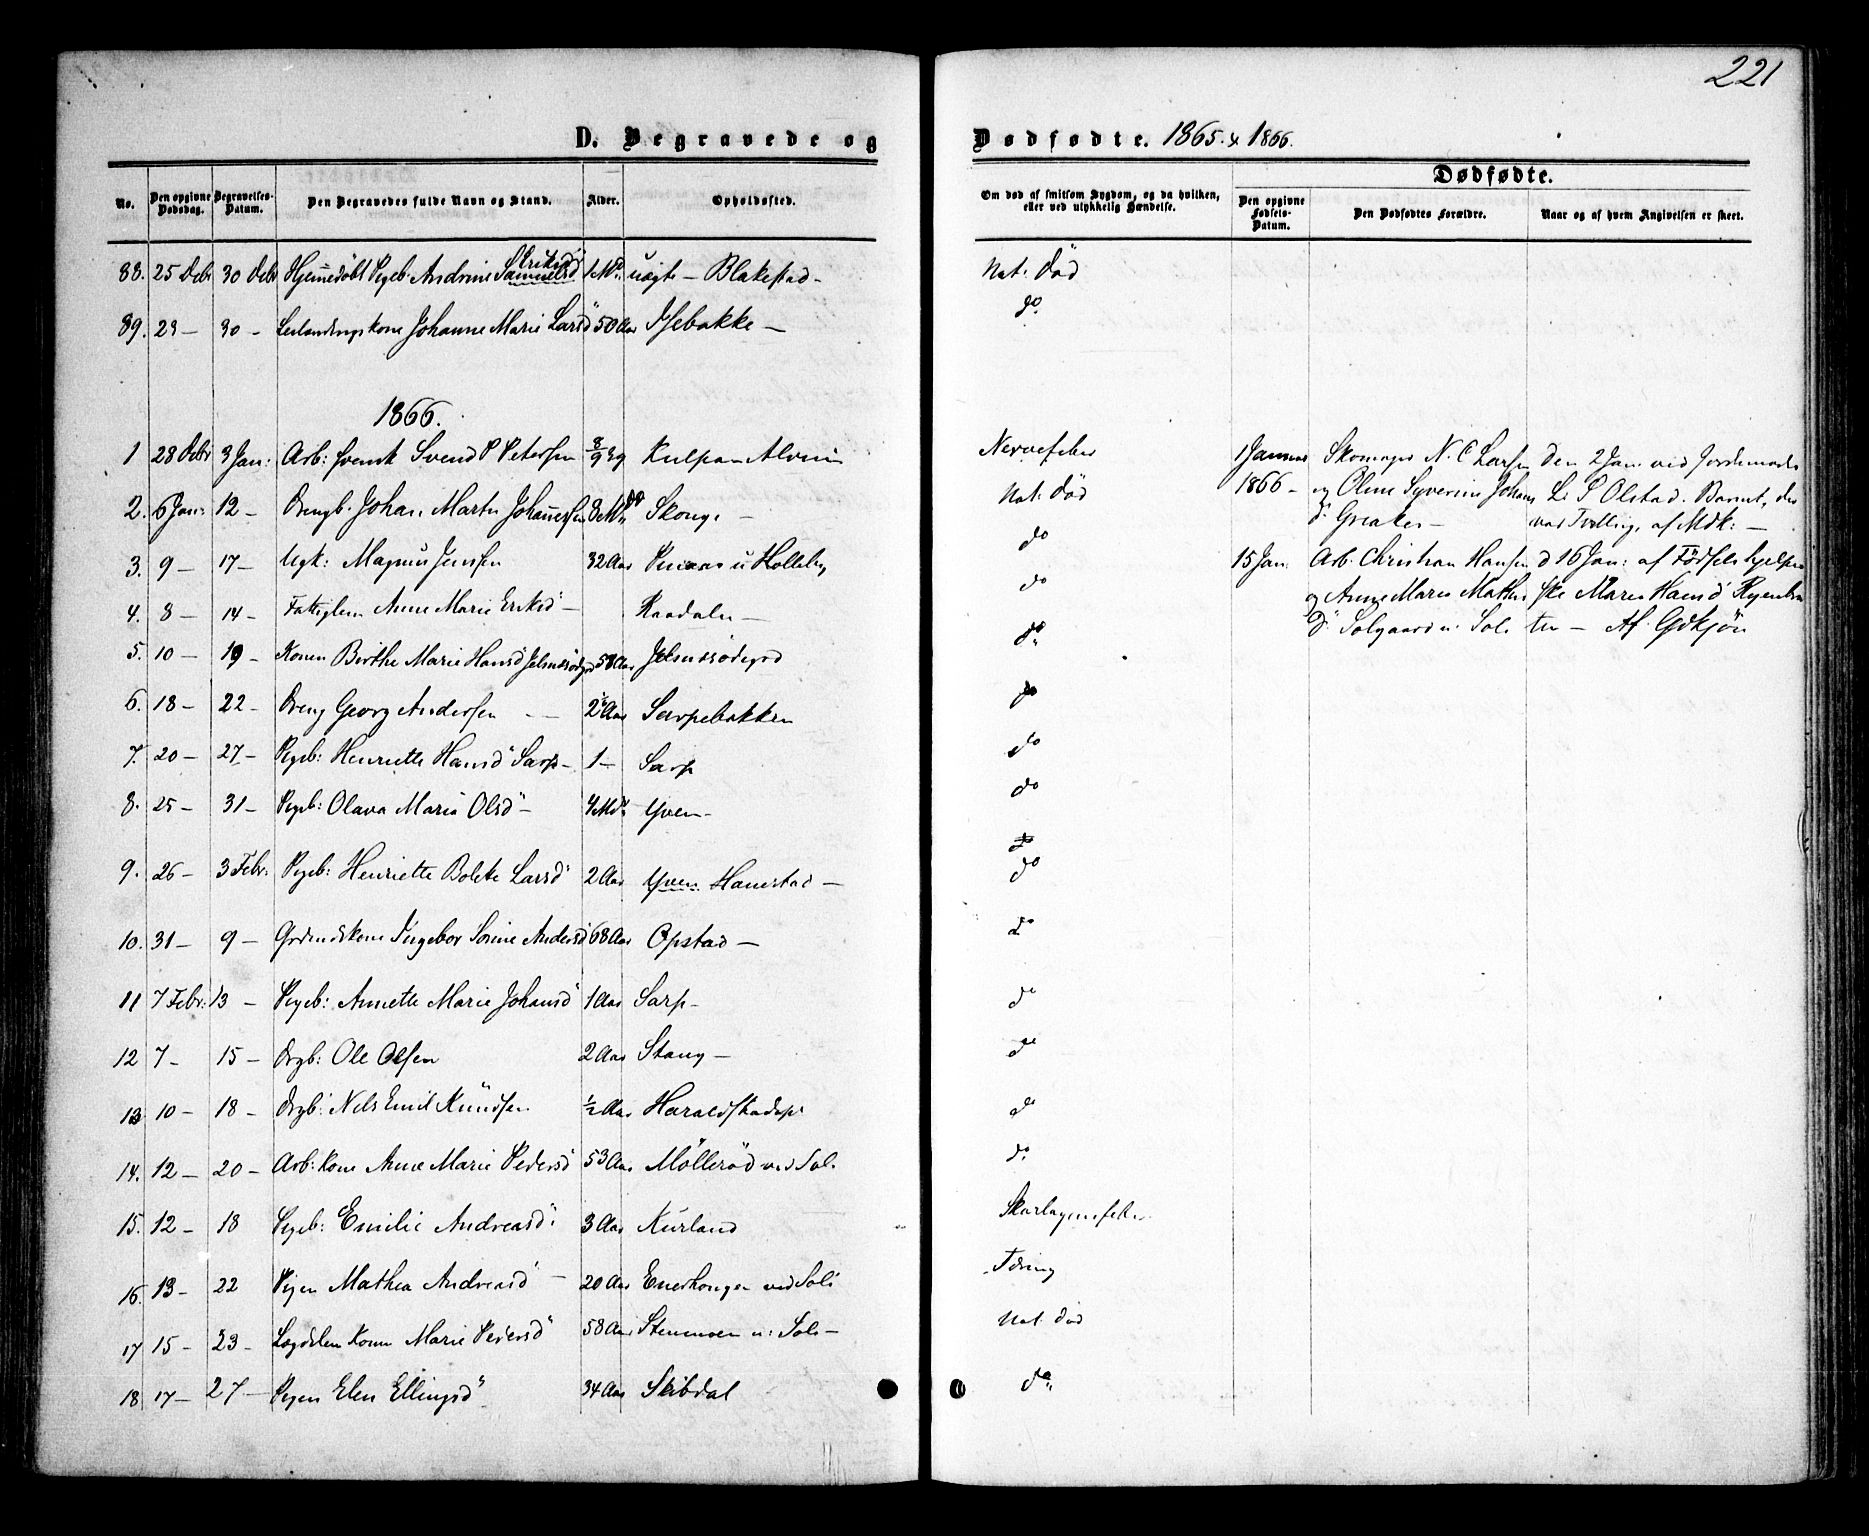 221
D. Begravede og Dødfødte. 1865 & 1866.
Dødfødte.
No. Den opgivne Dødsdag. Begravelses-Datum. Den Begravedes fulde Navn og Stand. Alder. Opholdssted. Om død af smitsom Sygdom, og da hvilken, eller ved ulykkelig Hændelse. Den opgivne Fødsels-Datum. Den Dødfødtes Forældre. Naar og af hvem Angivelsen er skeet.
88. 25 Debr 30 Debr Hjemmedöbt Pigeb. Andrine Samuelsd Eriksd 1 Md. uægte – Blakestad – Nat. Död
89. 23 – 30 – Johanne Marie Larsd 50 Aar Isebakke – do
1866.
1 28 Debr 3 Jan: Arb: Svensk Svend P Petersen 39 Kulpa – Alvim Nervefeber
2. 6 Jan: 12 – Drengb. Johan Martin Johannesen 8 Md Skonge – Nat. Död
3. 9 – 17 – Ugk: Magnus Jensen 32 Aar u Holleby do
4. 8 – 14 – Fattiglem Anne Marie Eriksd – Raadalen – do
5. 10 – 19 – Konen Birthe Marie Hansd 58 Aar do
6. 18 – 22 – Dreng Georg Andersen – 2 Aar Sarpebakken do
7. 20 – 27 – Pigeb: Henriette Hansd Sarp – 1 – Sarp do
8. 25 – 31 – Pigeb: Olava Maria Olsd – 4 Md Yven – do
9. 26 – 3 Febr: Pigeb: Henriette Bolete Larsd 2 Aar Yven Hanestad – do
10. 31 – 9 – Grdmdskone Ingebor Sorine Andersd 68 Aar Opstad – do
11 7 Febr: 13 – Pigeb: Annette Marie Johansd 1 Aar Sarp – do
12 7 – 15 – Drgb: Ole Olsen 2 Aar Stang – do
13 10 – 18 – Drgb: Nels Emil Knudsen ½ Aar do
14. 12 – 20 – Arb: Kone Anne Marie Pedersd 53 Aar Möllerød ved Sol. do
15. 12 – 18 Pigeb: Emilie Andreasd: 3 Aar Kurland Skarlagensfeber
16. 13 – 22 Pigen Mathea Andreasd – 20 Aar Enerhougen ved Soli Tæring
17 15 – 23 – Lægdslem Konen Marie Pedersd 58 Aar u: Soli – Nat. död
18 17 – 27 – Pigen Elen Ellingsd 34 Aar Skibdal do
1 Januar 1866 – Skomager N. C Larsen og Oline Syverine Johans d: Greaker – den 2 Jan ved Jordemoder L: S Olstad. Barnet, der var Tvilling, af Mdk: –
15 Jan: Arb. Christian Hansen og Anne Marie Mathis d: Solgaard u: Soli d 16 Jan: af Födselshjelperske Maren Hansd – Af Qvkjön